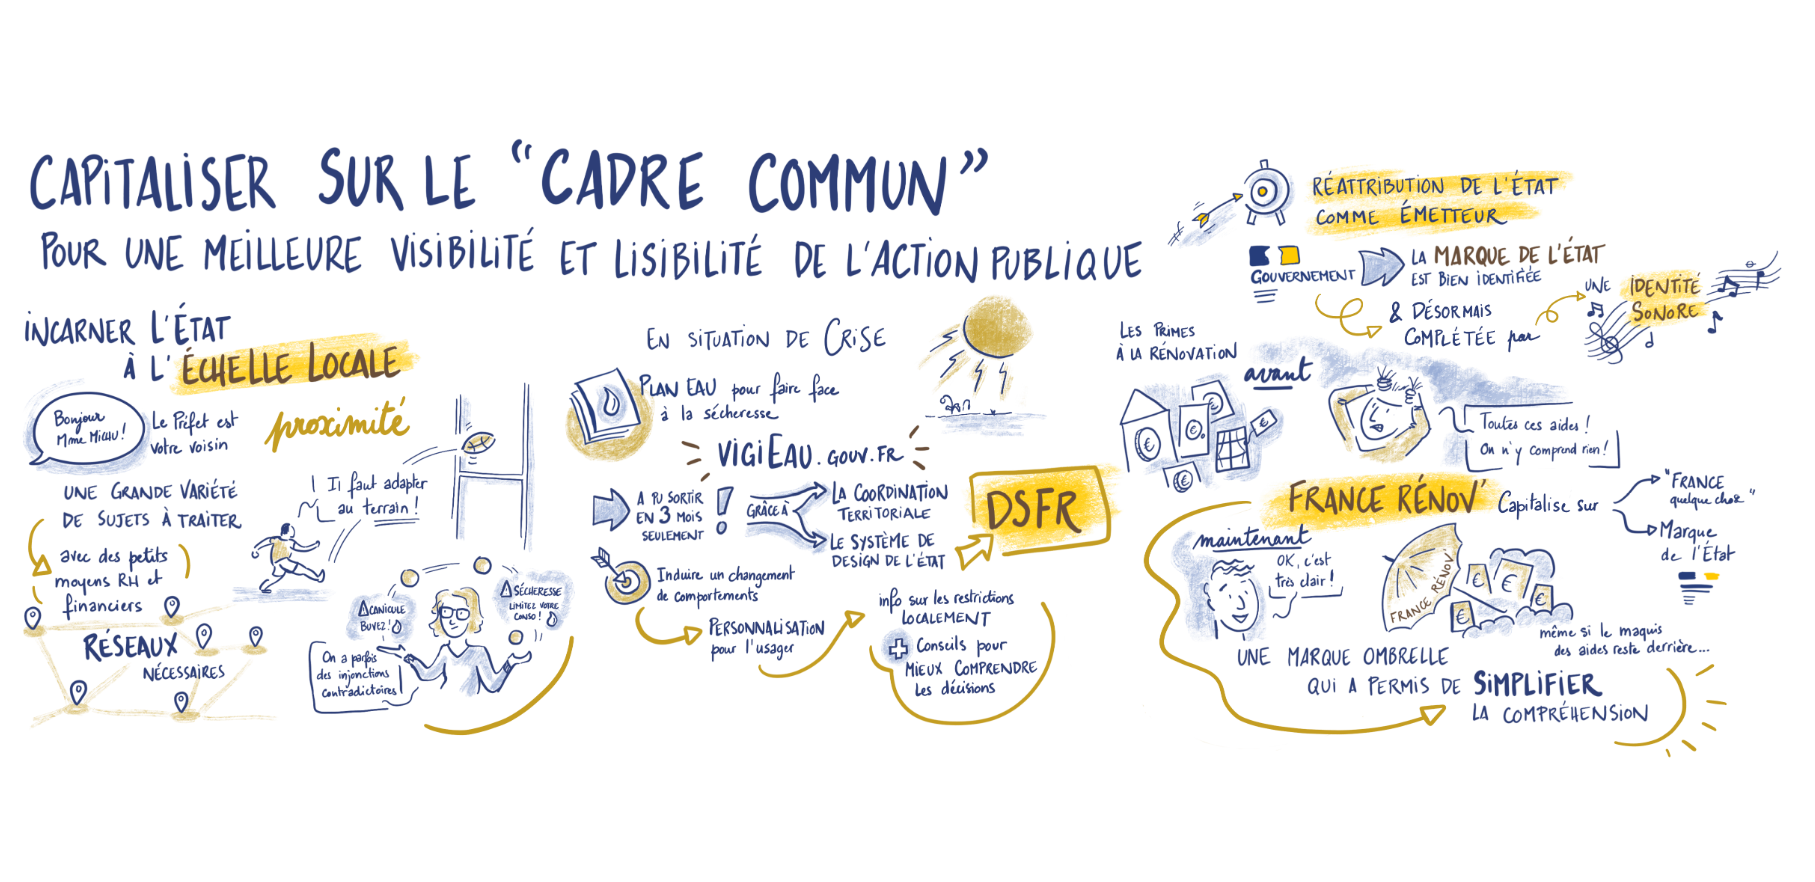 CAPITALISER SUR LE "CADRE COMMUN"
POUR UNE MEILLEURE VISIBILITÉ ET LISIBILITÉ DE L'ACTION PUBLIQUE
INCARNER L'ÉTAT
À L'ÉCHELLE LOCALE
Bonjour
Mme Michu !
Le Préfet est
votre voisin
proximité
UNE GRANDE VARIÉTÉ
DE SUJETS À TRAITER
avec des petits
moyens RH et
financiers
Il faut adapter
au terrain !
RÉSEAUX
NÉCESSAIRES
CANICULE
BUVEZ !
SÉCHERESSE
LIMITEZ VOTRE
CONSO !
On a parfois
des injonctions
contradictoires !
EN SITUATION DE CRISE
PLAN EAU pour faire face
à la sécheresse
VIGIEAU.GOUV.FR
A PU SORTIR
EN 3 MOIS
SEULEMENT
!
GRÂCE À
LA COORDINATION
TERRITORIALE
LE SYSTÈME DE
DESIGN DE L'ÉTAT
DSFR
Induire un changement
de comportements
PERSONNALISATION
pour l'usager
info sur les restrictions
LOCALEMENT
Conseils pour
MIEUX COMPRENDRE
les décisions
RÉATTRIBUTION DE L'ÉTAT
COMME ÉMETTEUR
GOUVERNEMENT
LA MARQUE DE L'ÉTAT
EST BIEN IDENTIFIÉE
& DÉSORMAIS
COMPLÉTÉE par
UNE
IDENTITÉ
SONORE
LES PRIMES
À LA RÉNOVATION
avant
€
€
€
€
€
Toutes ces aides !
On n'y comprend rien !
FRANCE RÉNOV' Capitalise sur
"FRANCE
quelque chose"
Marque
de l'État
maintenant
OK, c'est
très clair !
FRANCE RÉNOV'
€
€
€
€
même si le maquis
des aides reste derrière...
UNE MARQUE OMBRELLE
QUI A PERMIS DE SIMPLIFIER
LA COMPRÉHENSION